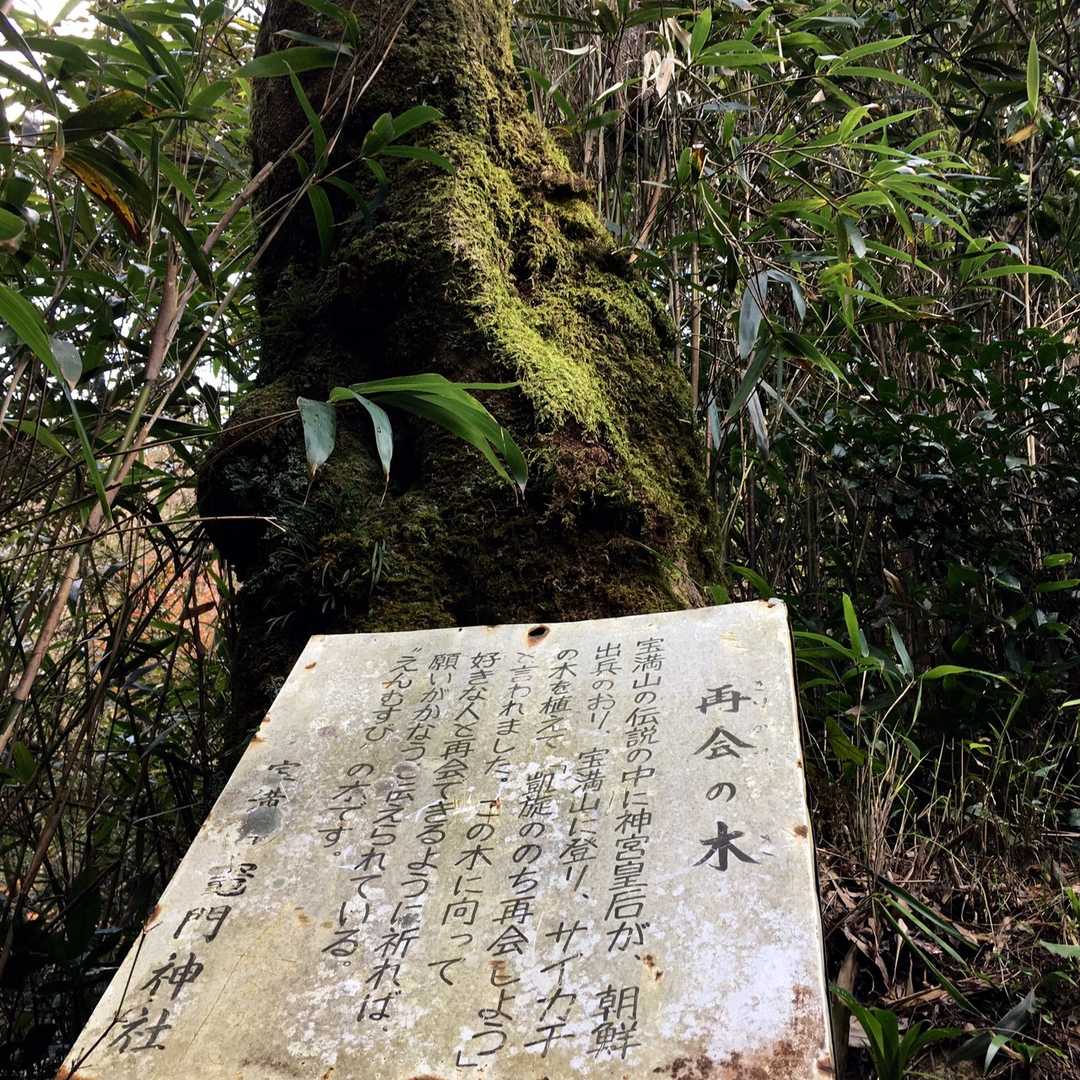 再会の木
宝満山の伝説の中に神宮皇后が、朝鮮
出兵のおり、宝満山に登り、サイカチ
の木を植えて「凱旋ののち再会しよう」
と言われました。この木に向って
好きな人と再会できるように祈れば、
願いがかなうと伝えられている。
"えんむすび"の木です。
宝満 竈門神社